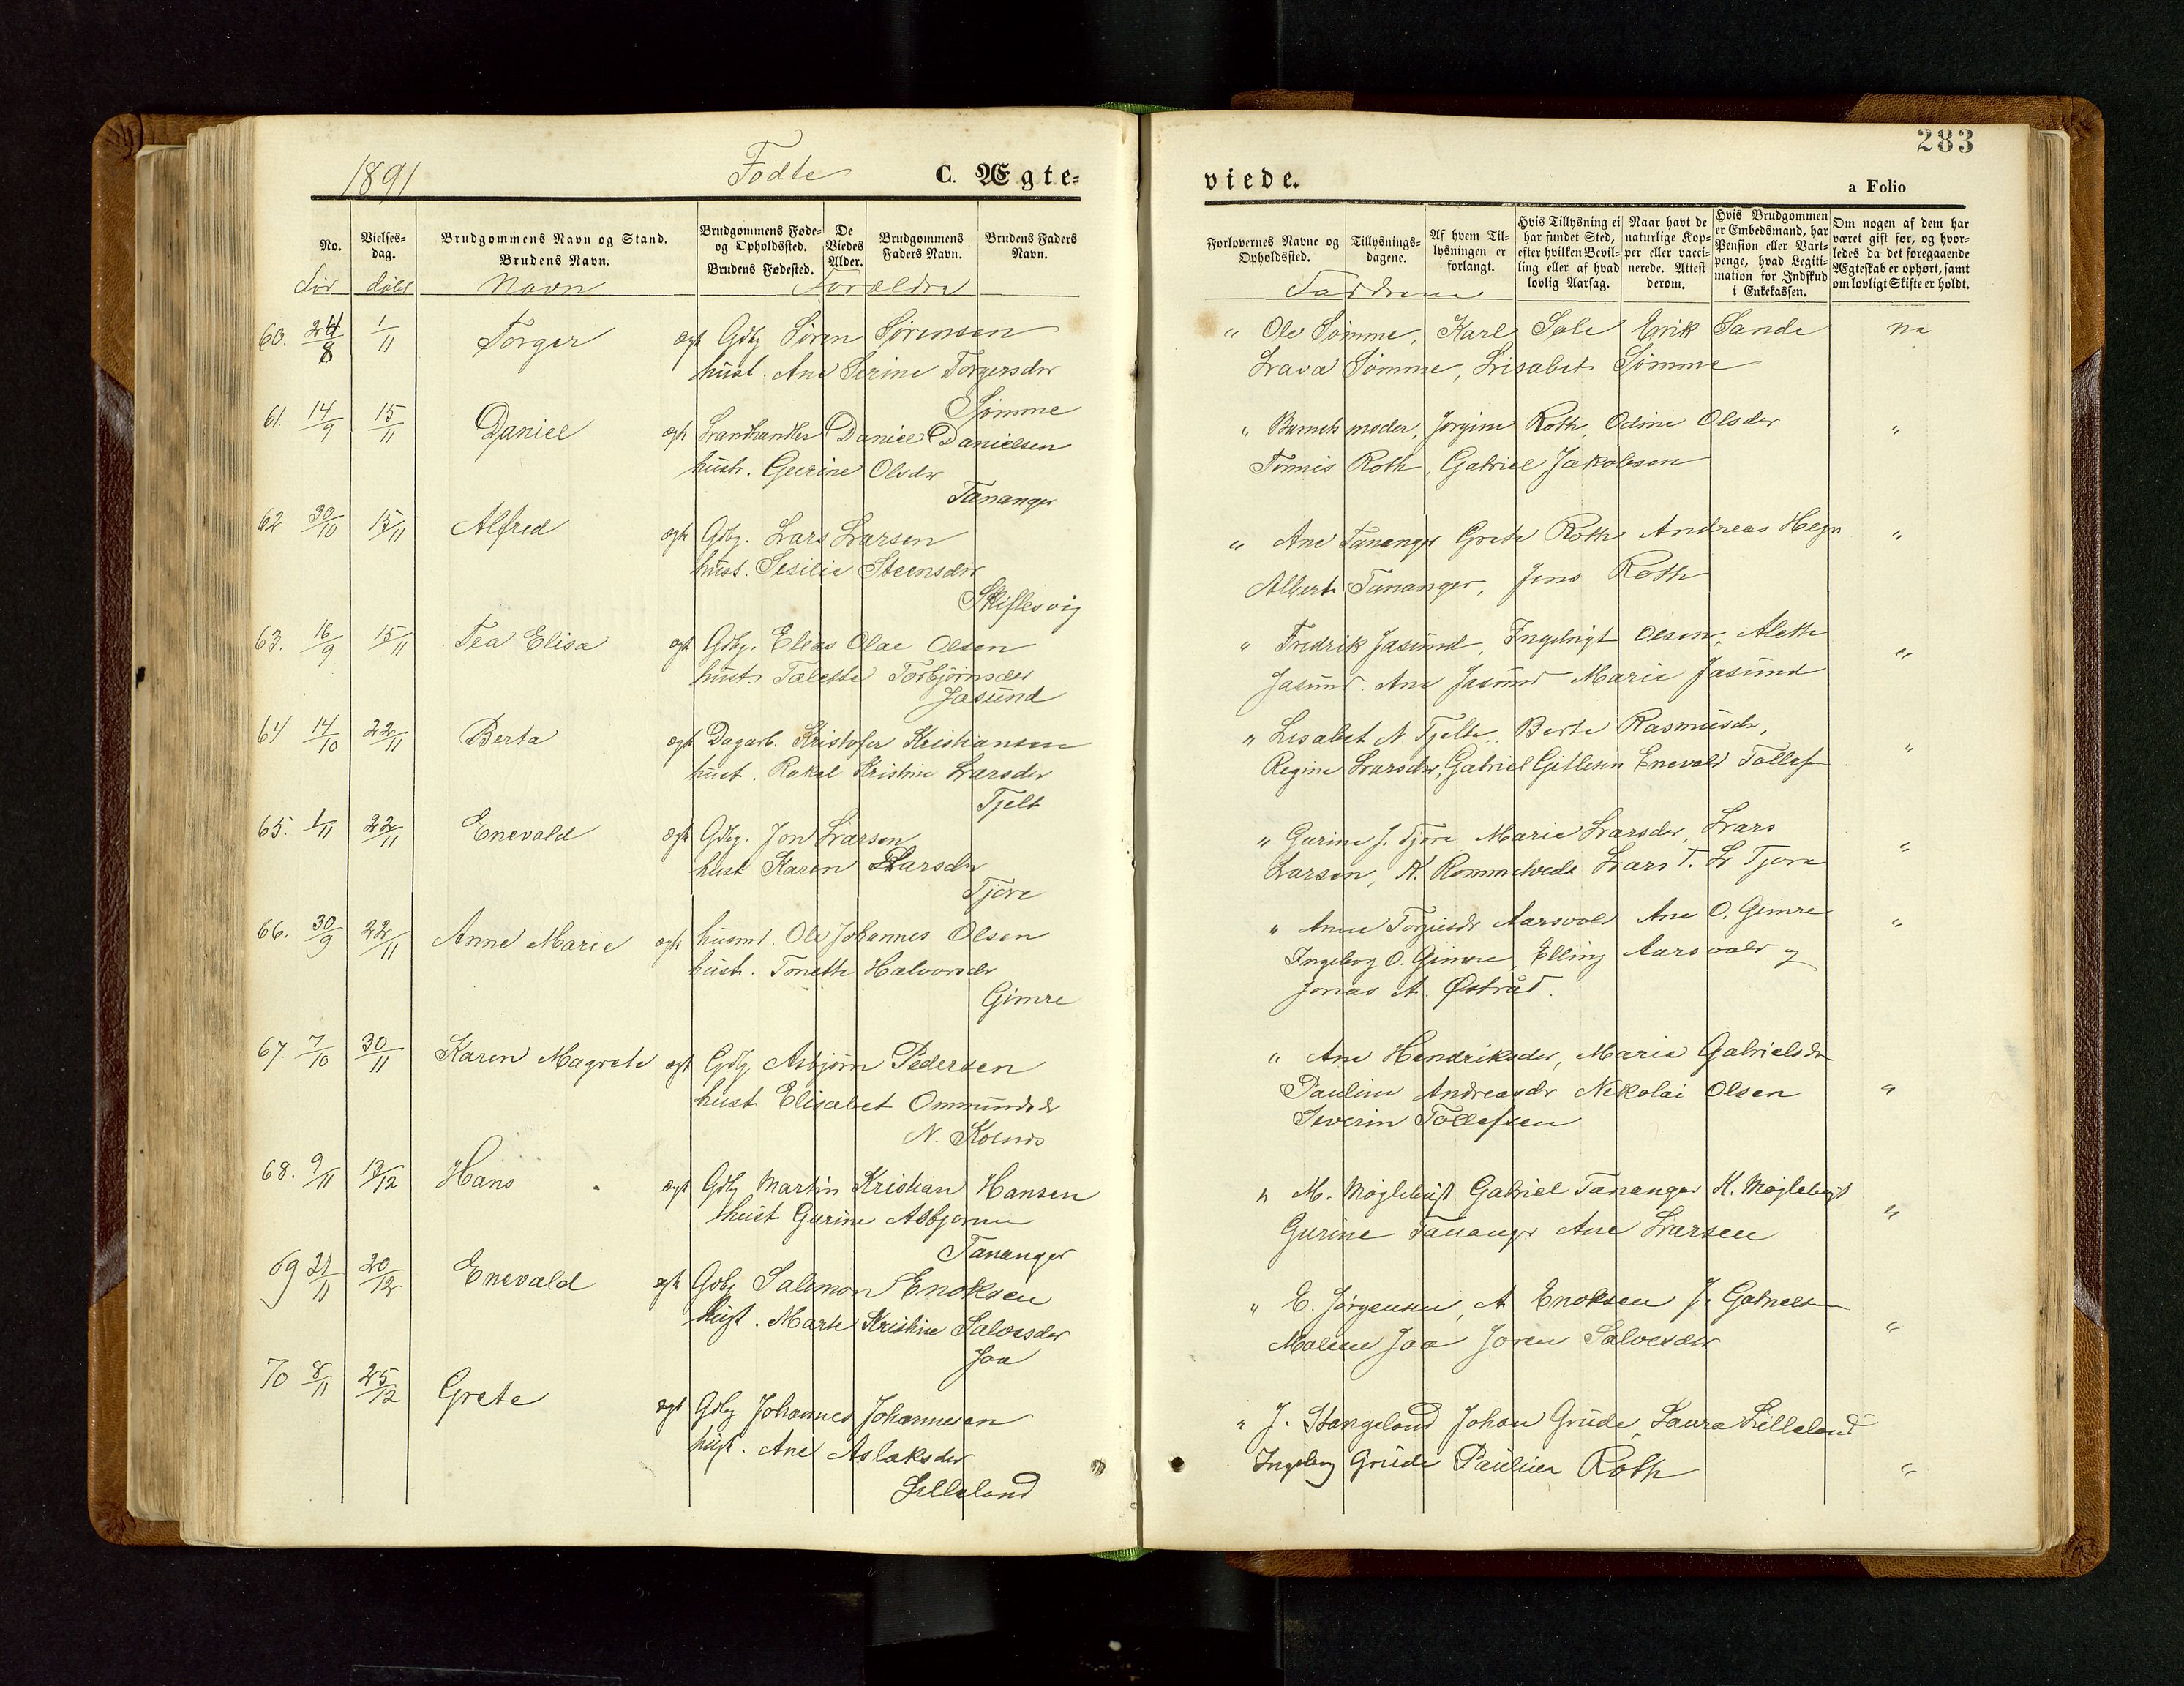 283
1891 Fødte C. Ægte-
viede.
a Folio
No.
Vielses-dag.
Brudgommens Navn og Stand.
Brudens Navn.
Brudgommens Føde- og Opholdssted.
Brudens Fødested.
De Viedes Alder.
Brudgommens Faders Navn.
Brudens Faders Navn.
Forlovernes Navne og Opholdssted.
Tillysnings-dagene.
Af hvem Til-lysningen er forlangt.
Hvis Tillysning ei har fundet Sted, efter hvilken Bevil-ling eller af hvad lovlig Aarsag.
Naar havt de naturlige Kop-per eller vacci-nerede. Attest derom.
Hvis Brudgommen er Embedsmand, har Pension eller Vart-penge, hvad Legiti-mation for Indskud i Enkekassen.
Om nogen af dem har været gift før, og hvor-ledes da det foregaaende Ægteskab er ophørt, samt om lovligt Skifte er holdt.
Navn Forældre
Faddrene
60. 24/8 1/11 Torger ægt Gdbg Søren Sørensen
hust. Ane Serine Torgersdr
Sømme
" Ole Sømme, Karl Sole Erik Sande na
Lava Sømme, Lisabet Sømme
61. 14/9 15/11 Daniel ægt Landhandler Daniel Danielsen
hust. Gurine Olsdr
Tananger
" Barnets moder, Jorgine Roth, Odine Olsdr "
Tønnis Roth, Gabriel Jakobsen
62 30/10 15/11 Alfred ægt Gdbg. Lars Larsen
hust. Sesilie Steensdr
Skiflesvig
" Ane Tananger Grete Roth Andreas Hegn "
Albert Tananger, Jens Roth
63. 16/9 15/11 Tea Elisa ægt Gdbg. Elias Olae Olsen
hust. Talette Torbjørnsdr
Jasund
" Fredrik Jasund, Ingebrigt Olsen, Alette "
Jasund. Ane Jasund Marie Jasund
64 14/10 22/11 Berta ægt Dagarb. Kristofer Kristiansen
hust. Rakel Kristine Larsdr
Tjelt
" Lisabet N Tjelte, Berte Rasmusdr, "
Regine Larsdr, Gabriel Gitlesen Enevald Tollefs
65. 1/11 22/11 Enevald ægt Gdbg. Jon Larsen
hust Karen Larsdr
Tjore
" Gurine J. Tjore Marie Larsdr, Lars "
Larsen, K. Rommetvedt Lars T. L Tjora
66. 30/9 22/11 Anne Marie ægt husmd. Ole Johannes Olsen
hust. Tonette Halvorsdr
Gimre
" Anne Torgiesdr Aarsvold Ane O. Gimre "
Ingeborg O. Gimre, Elling Aarsvold og
Jonas A. Østråd.
67. 7/10 30/11 Karen Magrete ægt Gdbg Asbjørn Pedersen
hust Elisabet Ommundsdr
N. Kolnes
" Ane Hendriksdr, Marie Gabrielsdr
Pauline Andreasdr Nekolai Olsen "
Severin Tollefsen
68. 9/11 13/12 Hans ægt Gdbg Martin Kristian Hansen
hust Gurine Asbjørnsn
Tananger
" M. Møglebust Gabriel Tananger K. Møglebust "
Gurine Tananger Ane Larsen
69 21/11 20/12 Enevald ægt Gdbg Salomon Enoksen
hust. Marte Kristine Salvesdr
Joa
" E. Jørgensen, A Enoksen J. Gabrielsen
Malene Joa Joren Salvesdr "
70 8/11 25/12 Grete ægt Gdbg Johannes Johannesen
hust. Ane Aslaksdr
Lilleland
" J. Stangeland Johan Grude, Laura Lilleland
Ingeborg Grude Pauline Roth "